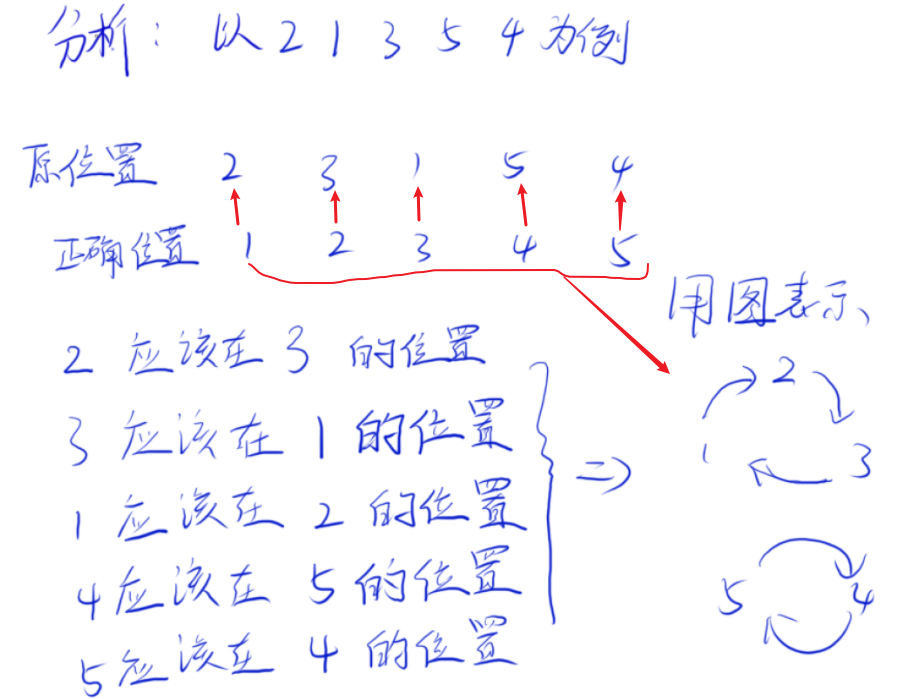 分析： 以 2 1 3 5 4 为例
原位置 2 3 1 5 4
正确位置 1 2 3 4 5
用图表示、
2 应该在 3 的位置
3 应该在 1 的位置
1 应该在 2 的位置
4 应该在 5 的位置
5 应该在 4 的位置
=>
2
1 3
5 4